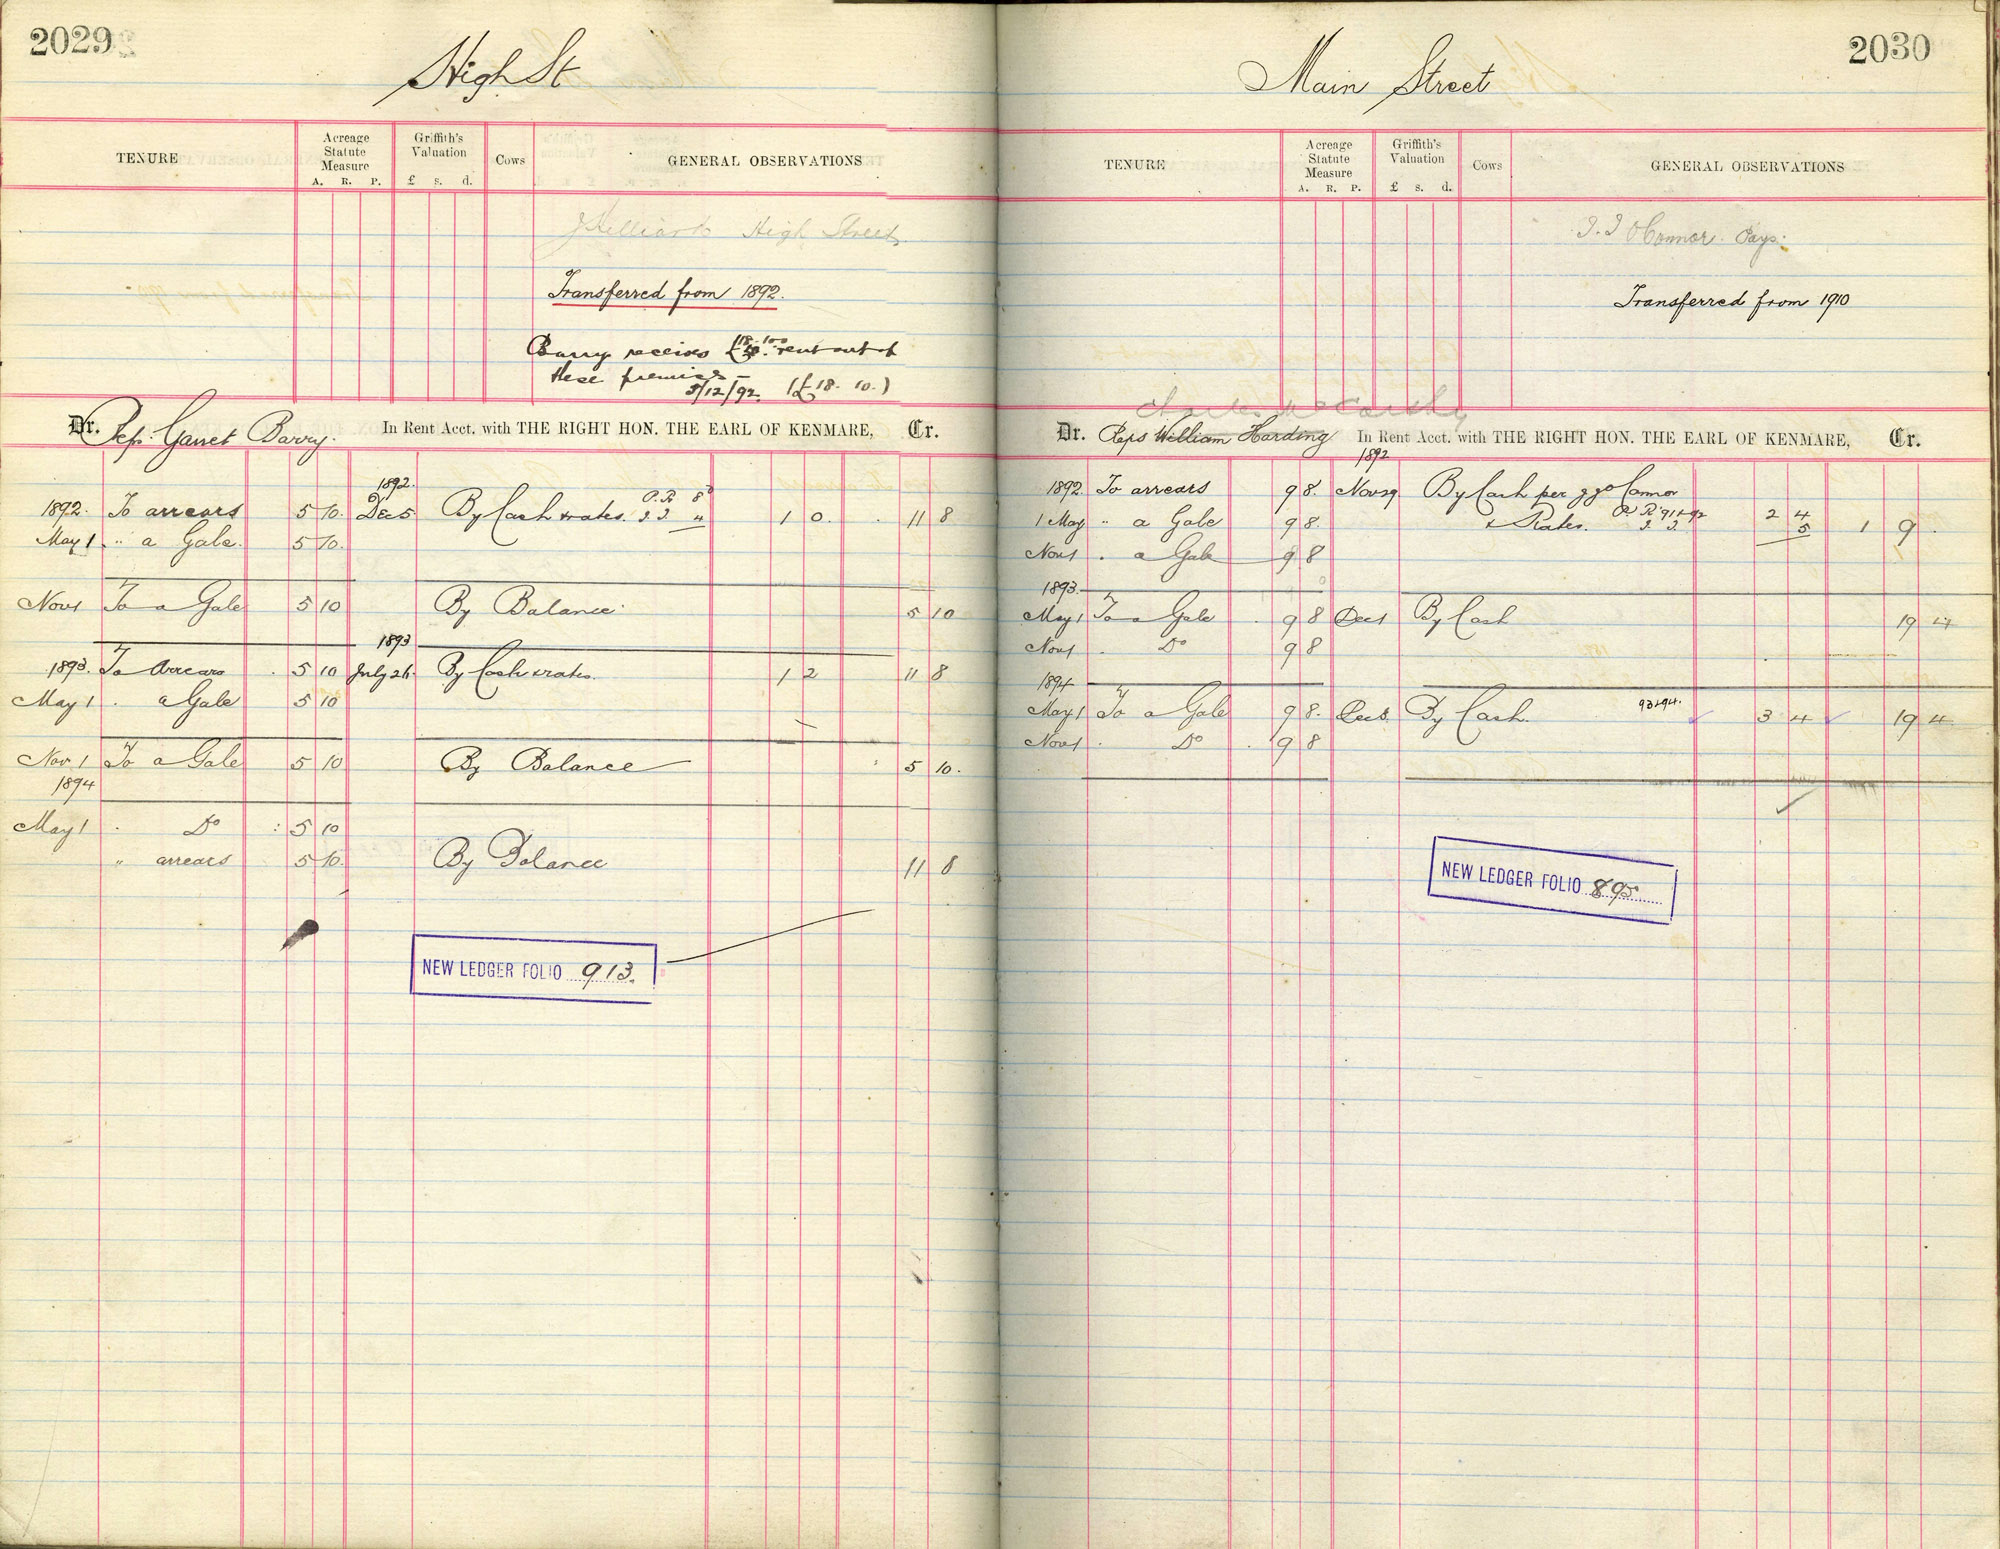 2029
High St
TENURE
Acreage Statute Measure
A. R. P.
Griffith's Valuation
£ s. d.
Cows
GENERAL OBSERVATIONS
High Street
Transferred from 1892.
Barry receives rent out of
these premises —
5/12/92. (£18. 10.)
Dr. Reps. Garret Barry. In Rent Acct. with THE RIGHT HON. THE EARL OF KENMARE, Cr.
1892.
1892. To arrears 5 10. Dec 5 By Cash & rates. P. R. 8d 1 0. 11 8
I. I. 4
May 1 " a Gale. 5 10.
Nov 1 To a Gale 5 10 By Balance 5 10
1893
1893. To Arrears 5 10 July 26 By Cash & rates. 1 2 11 8
May 1 . a Gale 5 10
Nov 1 To a Gale 5 10 By Balance 5 10.
1894
May 1 . Do : 5 10
" arrears 5 10. By Balance 11 8
NEW LEDGER FOLIO 913.
2030
Main Street
TENURE
Acreage Statute Measure
A. R. P.
Griffith's Valuation
£ s. d.
Cows
GENERAL OBSERVATIONS
O'Connor. Pays.
Transferred from 1910
Charles McCarthy
Dr. Reps William Harding In Rent Acct. with THE RIGHT HON. THE EARL OF KENMARE, Cr.
1892
1892. To arrears 9 8. Nov 29 By Cash per J J O'Connor
1 May " a Gale 9 8. & Rates. P. R. 91 & 92 2 4 1 9
I. I. 5
Nov 1 . a Gale 9 8
1893.
May 1 To a Gale 9 8 Dec 1 By Cash 19 4
Nov 1 . Do 9 8
1894
May 1 To a Gale 9 8. Dec 8. By Cash. 93 & 94. 3 4 19 4
Nov 1 . Do . 9 8
NEW LEDGER FOLIO 895